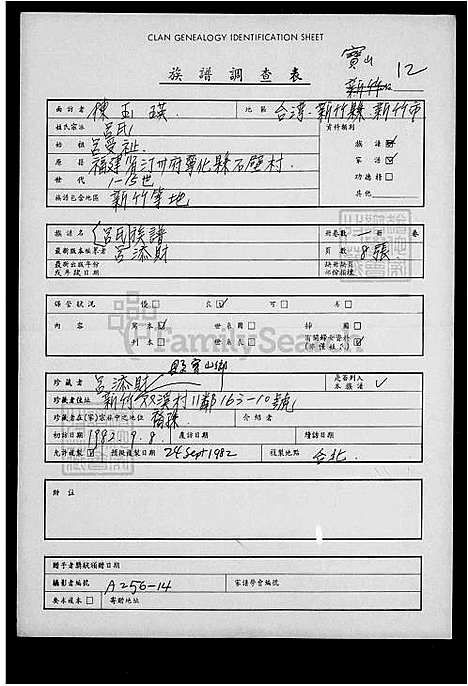 CLAN GENEALOGY IDENTIFICATION SHEET
寶山
新竹
12
族譜調查表
面訪者 陳玉瑛 地區 台灣新竹縣新竹市
姓氏宗派 呂氏 資料類別
始祖 呂受祉 族譜 ☑
原籍 福建省汀州府寧化縣石壁村 家譜 ☑
世代 1-15世 功德簿 □
族譜包含地區 新竹等地 其他
族譜名 呂氏族譜 冊卷數 一冊 卷
最新版本編纂者 呂添財 頁數 8張
最新出版年份或年級日期 缺冊缺頁
保管狀況 優□ 良☑ 可□ 劣□
內容 寫本☑ 世系圖□ 插圖□
刊本□ 世系表□ 有關婦女資料
FamilySearch
縣寶山鄉
珍藏者 呂添財 是否列入本族譜 ✓
珍藏者住址 新竹双溪村11鄰163-10號
珍藏者在(家)宗族中之地位 裔孫 介紹者
初訪日期 1982.9.8. 複訪日期 續訪日期
允許複製☑ 攝製複製日期 24 Sept 1982 複製地點 台北
附註
贈予者獎狀頒贈日期
攝影者編號 A256-14 家譜學會編號
要求複本□ 寄贈地址